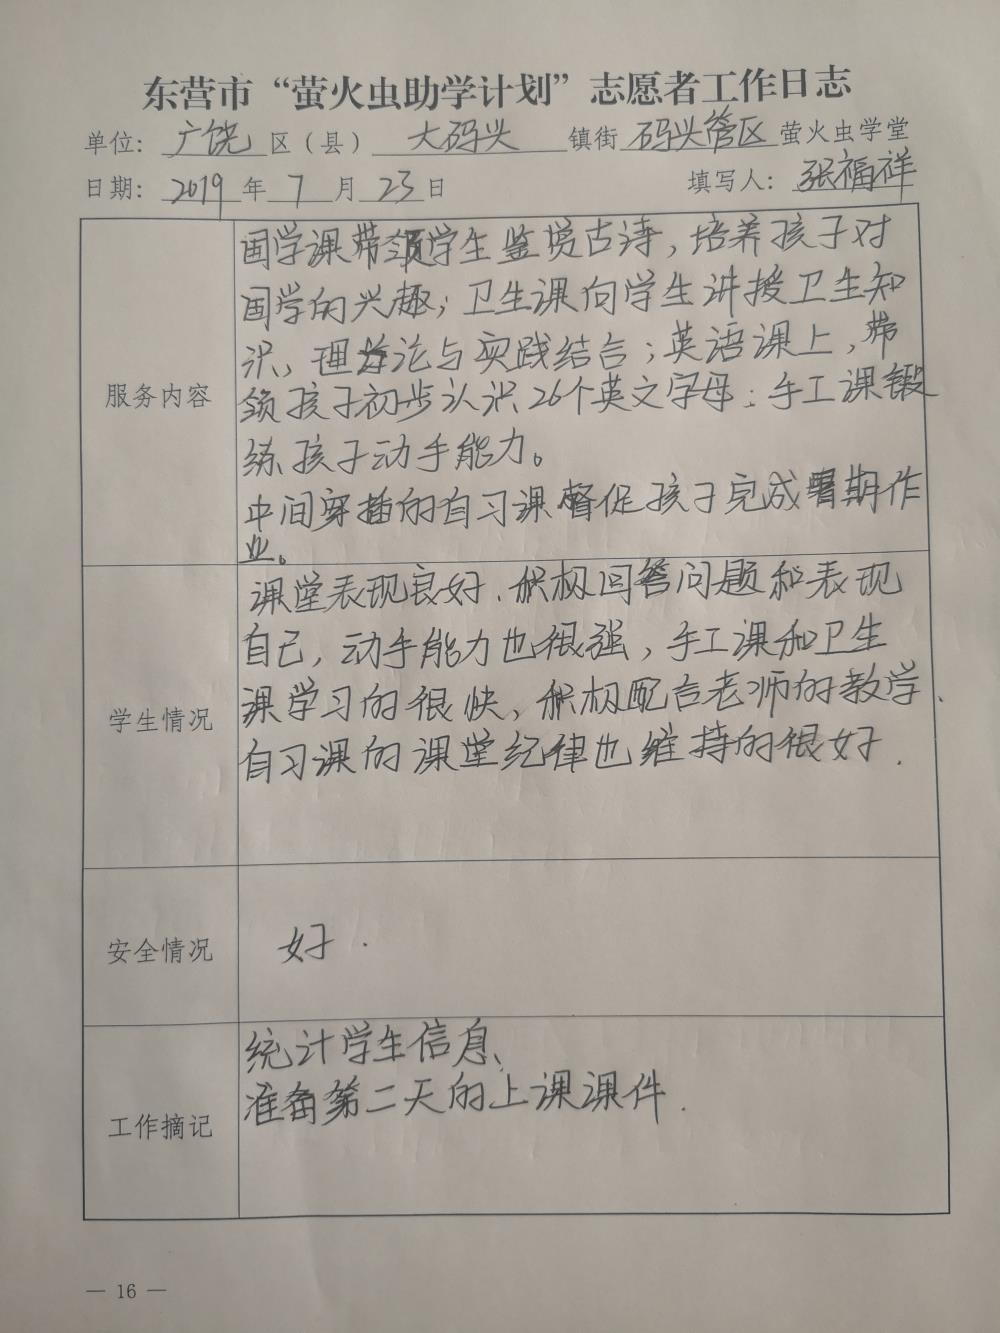 东营市“萤火虫助学计划”志愿者工作日志
单位：广饶区（县）大码头镇街码头管区萤火虫学堂
日期：2019年7月23日 填写人：张福祥
服务内容
国学课带领学生鉴赏古诗，培养孩子对
国学的兴趣；卫生课向学生讲授卫生知
识，理论与实践结合；英语课上，带
领孩子初步认识26个英文字母；手工课锻
练孩子动手能力。
中间穿插的自习课督促孩子完成暑期作
业。
学生情况
课堂表现良好.积极回答问题和表现
自己，动手能力也很强，手工课和卫生
课学习的很快，积极配合老师的教学.
自习课的课堂纪律也维持的很好.
安全情况
好.
工作摘记
统计学生信息、
准备第二天的上课课件.
— 16 —